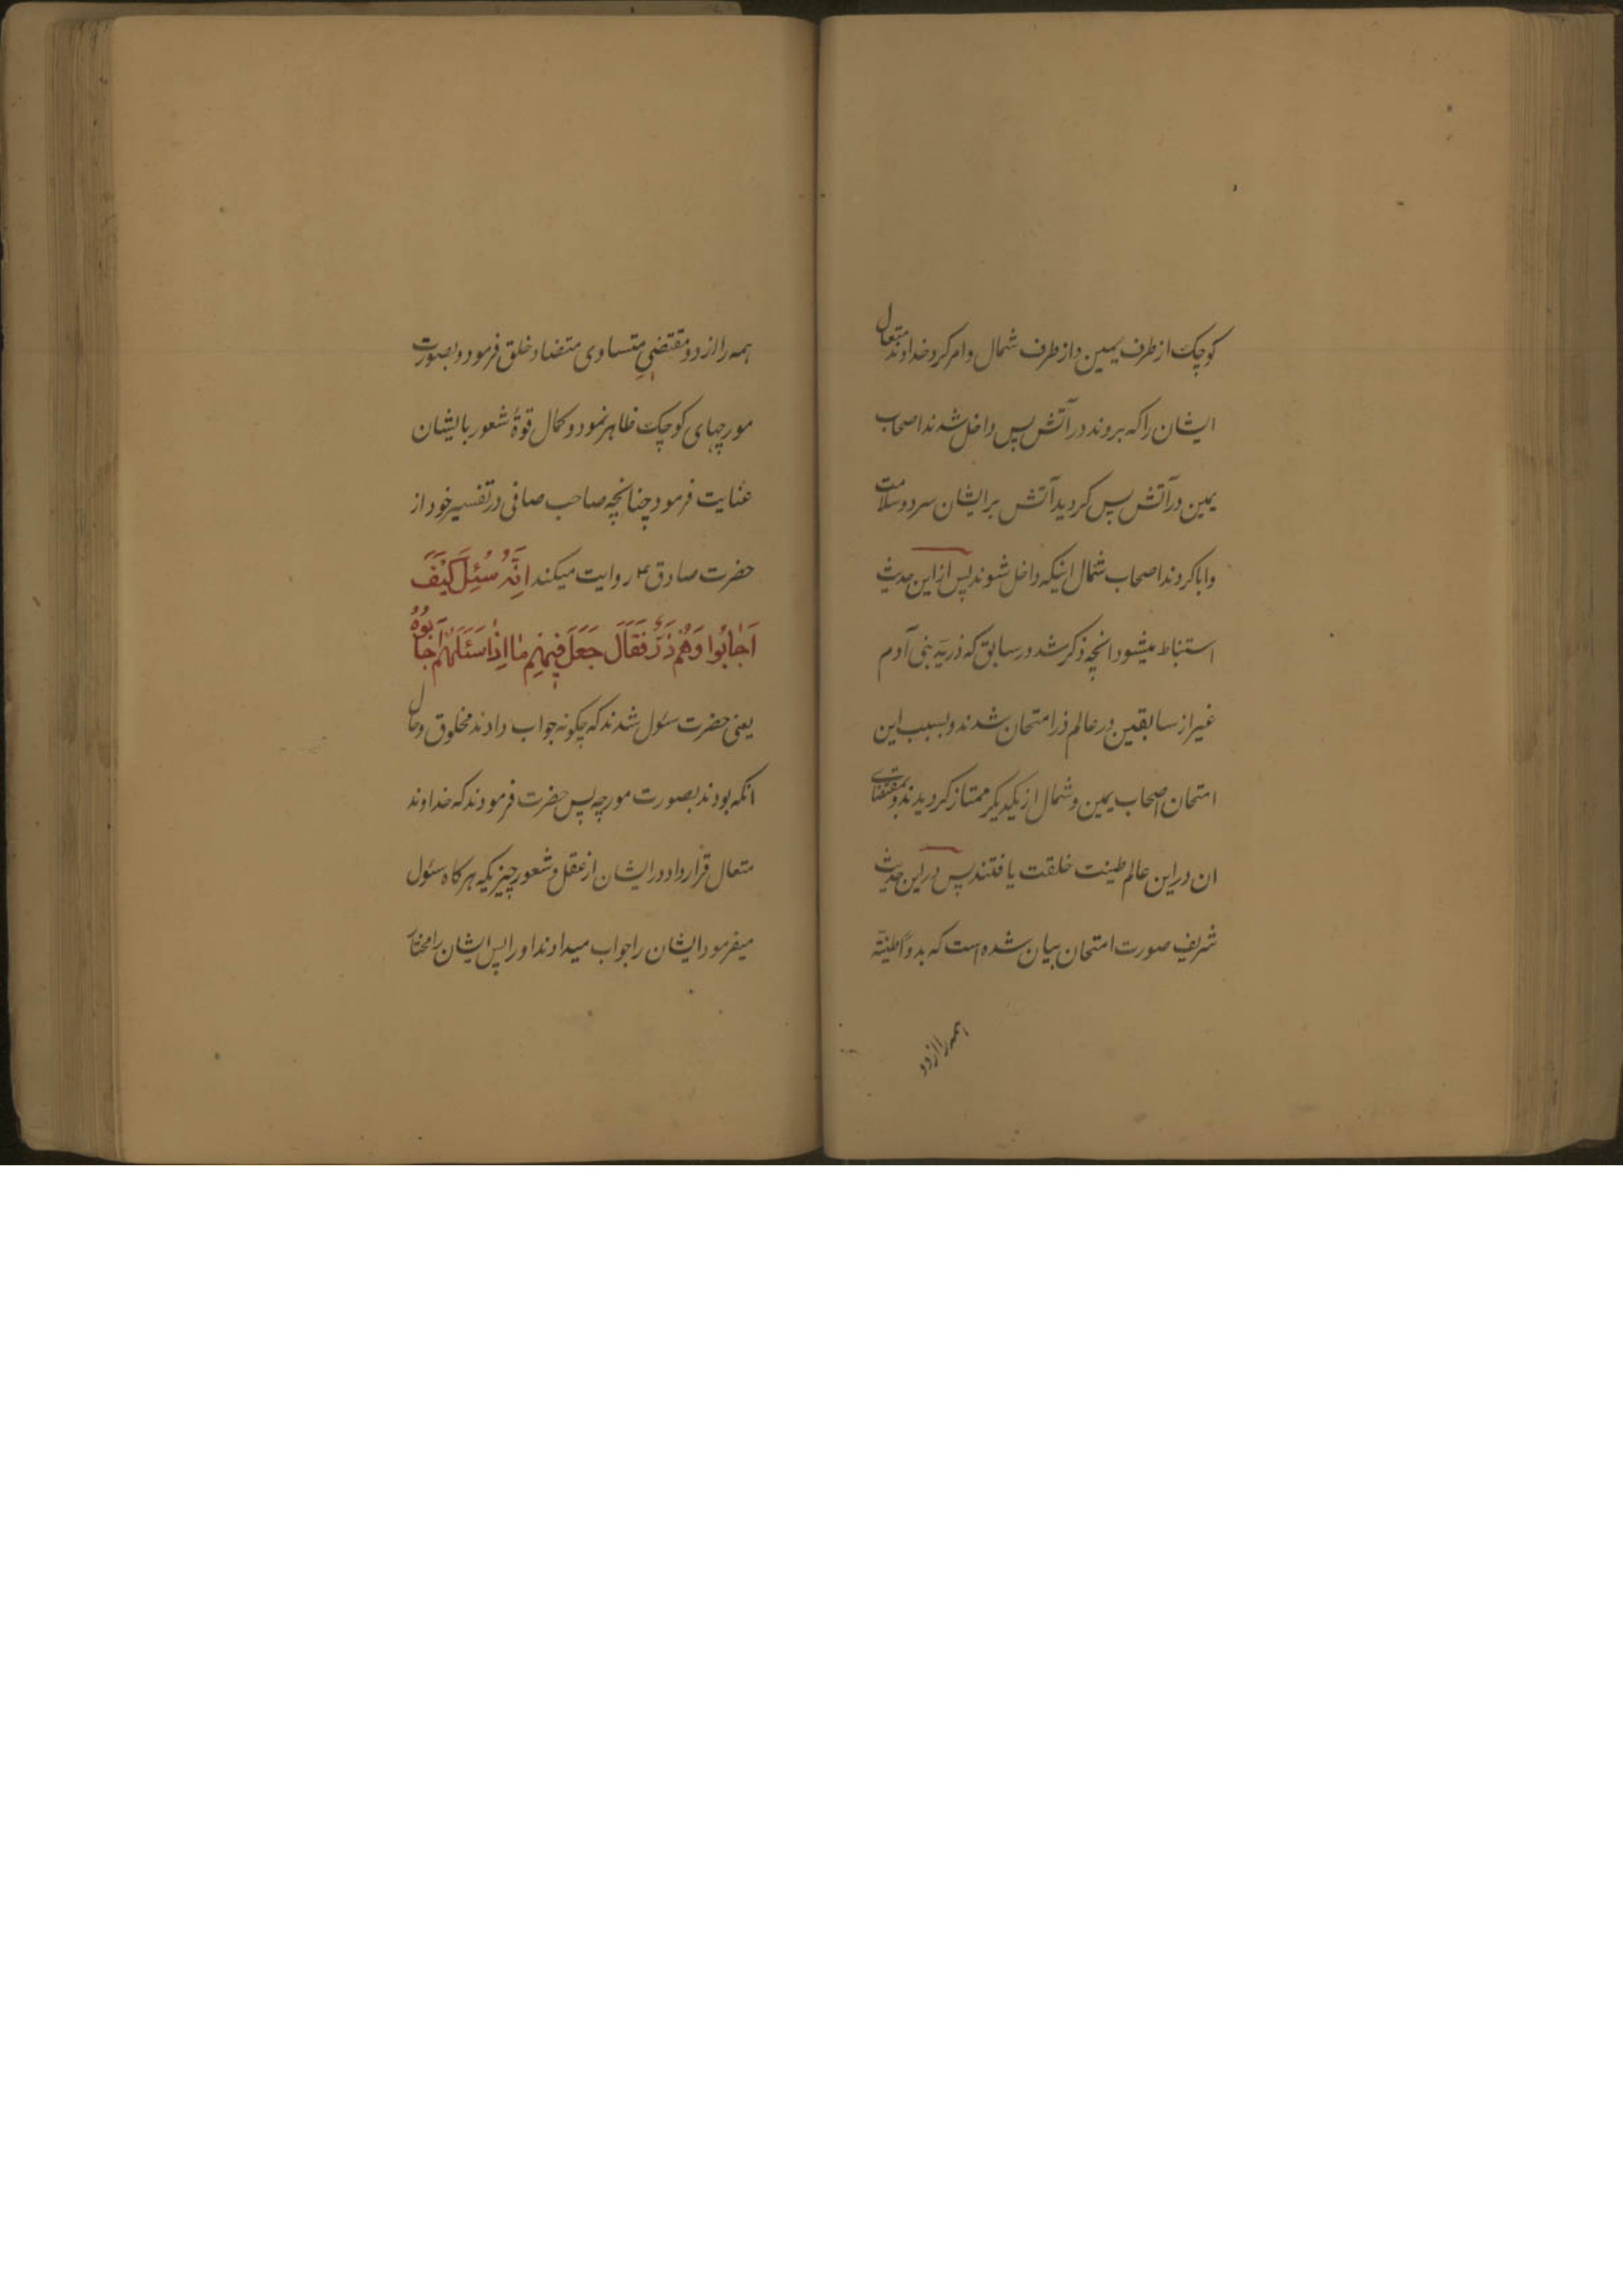 کوچک از طرف یمین و از طرف شمال و امر کرد خداوند متعال
ایشان را که بروند در آتش پس داخل شدند اصحاب
یمین در آتش پس کردید آتش بر ایشان سرد و سلامت
و ابا کردند اصحاب شمال اینکه داخل شوند پس از این حدیث
استنباط میشود انچه ذکر شد در سابق که ذریّه بنی آدم
غیر از سابقین در عالم ذر امتحان شدند و بسبب این
امتحان اصحاب یمین و شمال از یکدیکر ممتاز کردیدند و بمقتضای
ان در این عالم طینت خلقت یافتند پس در این حدیث
شریف صورت امتحان بیان شده است که بدواً طینة
همه را از دو
همه را از دو مقتضیِ متساوی متضاد خلق فرمود و بصورت
مورچهای کوچک ظاهر نمود و کمال قوّهٔ شعور بایشان
عنایت فرمود چنانچه صاحب صافی در تفسیر خود از
حضرت صادق ع روایت میکند اِنَّهُ سُئِلَ کَیْفَ
اَجٰابُوا وَهُمْ ذَرٌّ فَقَالَ جَعَلَ فِیهِمْ مٰا اِذٰا سَئَلَهُمْ اَجٰابُوهُ
یعنی حضرت سئول شدند که چکونه جواب دادند مخلوق و حال
انکه بودند بصورت مورچه پس حضرت فرمودند که خداوند
متعال قرار داد در ایشان از عقل و شعور چیزیکه هر کاه سئول
میفرمود ایشان را جواب میدادند او را پس ایشان را مختار